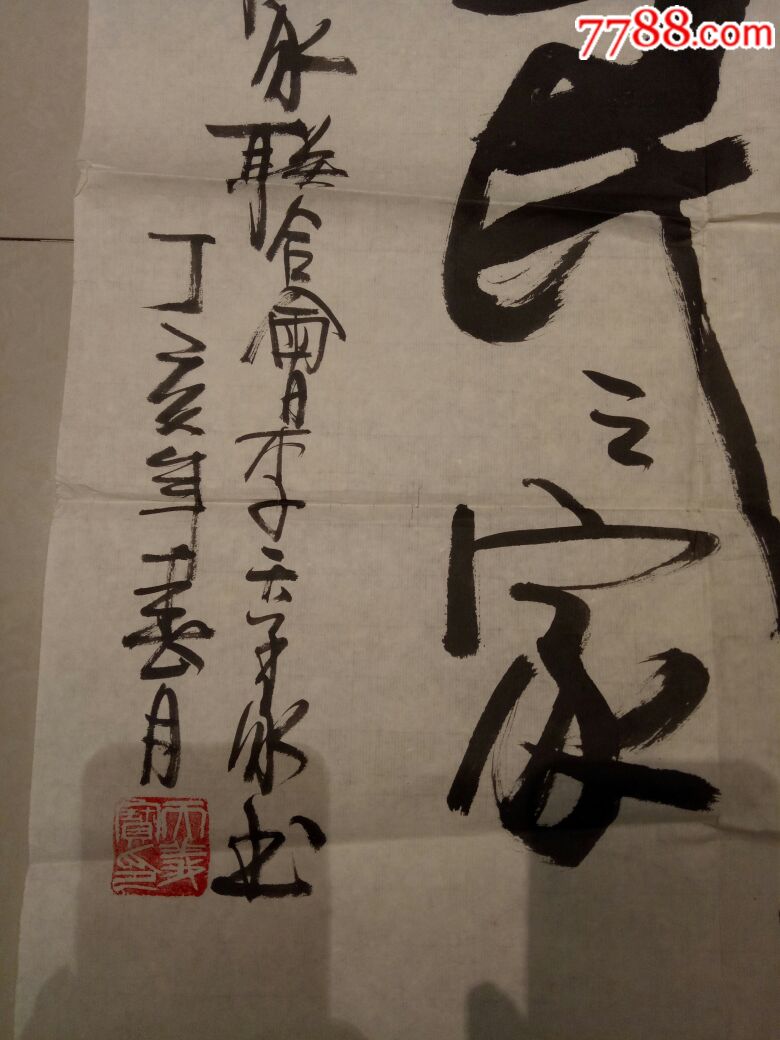 7788.com
民之家
家聯合會員李天
書
丁亥年春月